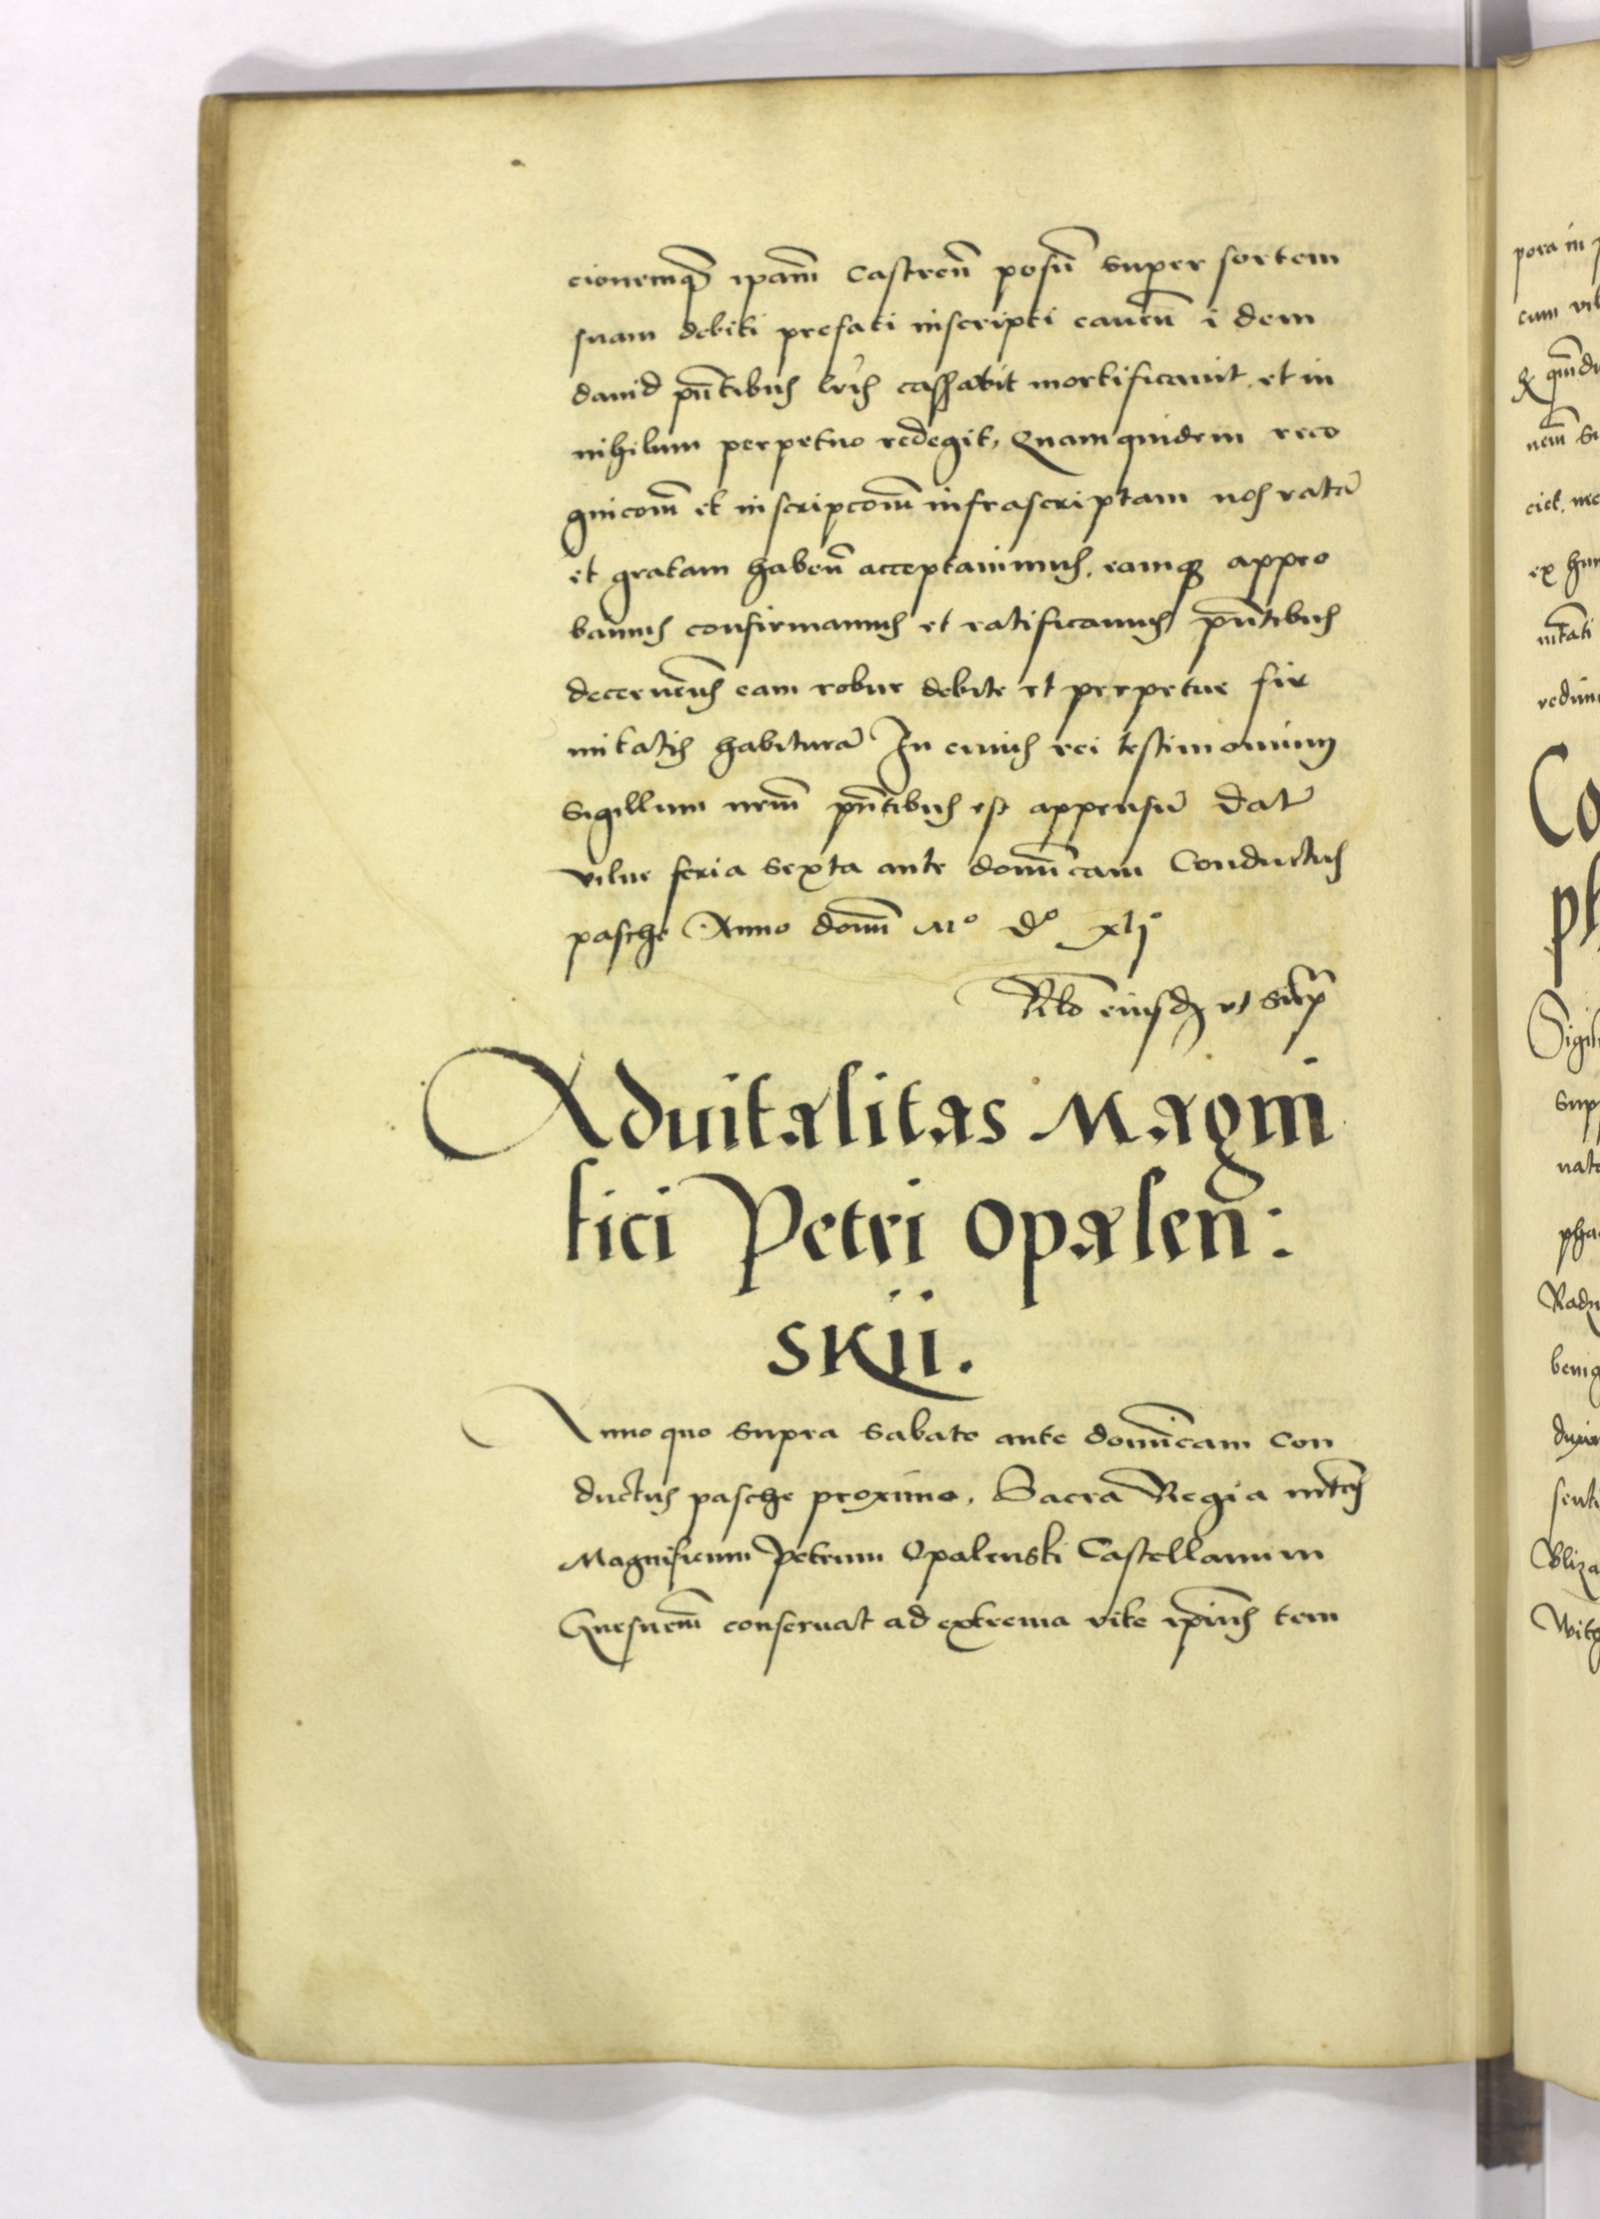 cionemq̃ ipam̃ Castren̄ posn̄ super sortem
suam debiti prefati inscripti caucn̄ i dem
dauid pn̄tibus lr̃is cassauit mortificauit, et in
nihilum perpetuo redegit, Quam quidem reco
gnicom̃ et inscripcom̃ infrascriptam nos ratā
et gratam haben̄ acceptauimus, eamq̃ appro
bamus confirmamus et ratificamus pn̄tibus
decernen̄s eam robur debite et perpetue fir
mitatis habiturā In cuius rei testimonium
Sigillum nr̃m pn̄tibus est appensū Dat̄
vilne feria sexta ante domīcam Conductus
pasche Anno domī Mº dº xljº
Rełō eiusdē vt supr̃
Aduitalitas Magni
fici Petri Opaleñ:
skii.
Anno quo supra Sabato ante domīcam Con
ductus pasche proximo, Sacra Regia mt̃as
Magnificum Petrum Opalenski Castellanum
Gnesnen̄ conseruat ad extrema vite ipīus tem
pora in
cum
nem̃
ex
Co
ph
Sigil
sup
nato
pha
benig
senti
Eliza
Wito